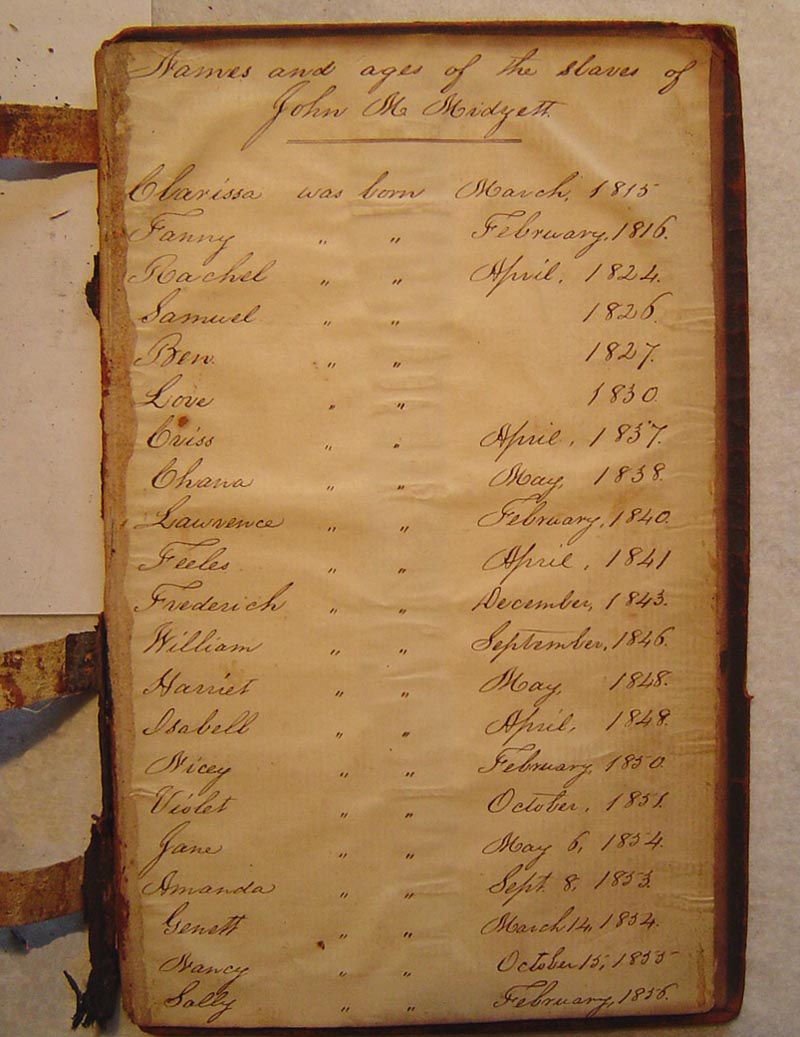 Names and ages of the slaves of
John M Midyett.
Clarissa was born March, 1815
Fanny " " February, 1816.
Rachel " " April, 1824.
Samuel " " 1826.
Ben. " " 1827.
Love " " 1830.
Criss " " April, 1837.
Chana " " May, 1838.
Lawrence " " February, 1840.
Feeles " " April, 1841
Frederich " " December, 1843.
William " " September, 1846.
Harriet " " May, 1848.
Isabell " " April, 1848.
Nicey " " February, 1850.
Violet " " October, 1851.
Jane " " May 6, 1854.
Amanda " " Sept. 8, 1853.
Genett " " March 14, 1854.
Nancy " " October 15, 1855
Sally " " February, 1856.